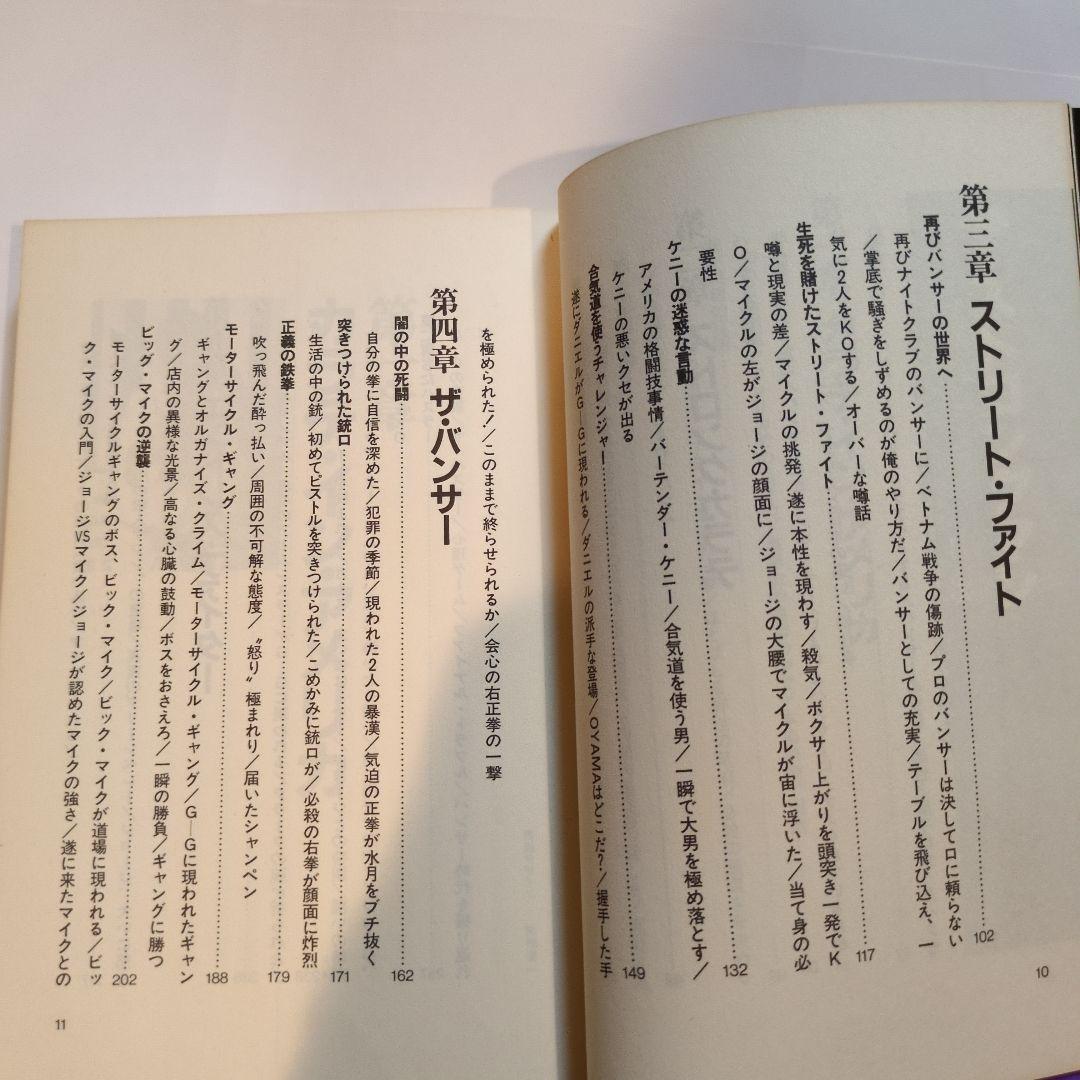 第三章 ストリート・ファイト
再びバンサーの世界へ……102
再びナイトクラブのバンサーに／ベトナム戦争の傷跡／プロのバンサーは決して口に頼らない
／掌底で騒ぎをしずめるのが俺のやり方だ／バンサーとしての充実／テーブルを飛び込え、一
気に2人をKOする／オーバーな噂話
生死を賭けたストリート・ファイト……117
噂と現実の差／マイクルの挑発／遂に本性を現わす／殺気／ボクサー上がりを頭突き一発でK
O／マイクルの左がジョージの顔面に／ジョージの大腰でマイクルが宙に浮いた／当て身の必
要性
ケニーの迷惑な言動……132
アメリカの格闘技事情／バーテンダー・ケニー／合気道を使う男／一瞬で大男を極め落とす／
ケニーの悪いクセが出る
合気道を使うチャレンジャー……149
遂にダニエルがG―Gに現われる／ダニエルの派手な登場／OYAMAはどこだ?／握手した手
10
を極められた!／このままで終らせられるか／会心の右正拳の一撃
第四章 ザ・バンサー
闇の中の死闘……162
自分の拳に自信を深めた／犯罪の季節／現われた2人の暴漢／気迫の正拳が水月をブチ抜く
突きつけられた銃口……171
生活の中の銃／初めてピストルを突きつけられた／こめかみに銃口が／必殺の右拳が顔面に炸烈
正義の鉄拳……179
吹っ飛んだ酔っ払い／周囲の不可解な態度／〝怒り〟極まれり／届いたシャンペン
モーターサイクル・ギャング……188
ギャングとオルガナイズ・クライム／モーターサイクル・ギャング／G―Gに現われたギャン
グ／店内の異様な光景／高なる心臓の鼓動／ボスをおさえろ／一瞬の勝負／ギャングに勝つ
ビッグ・マイクの逆襲……202
モーターサイクルギャングのボス、ビック・マイク／ビック・マイクが道場に現われる／ビッ
ク・マイクの入門／ジョージVSマイク／ジョージが認めたマイクの強さ／遂に来たマイクとの
11